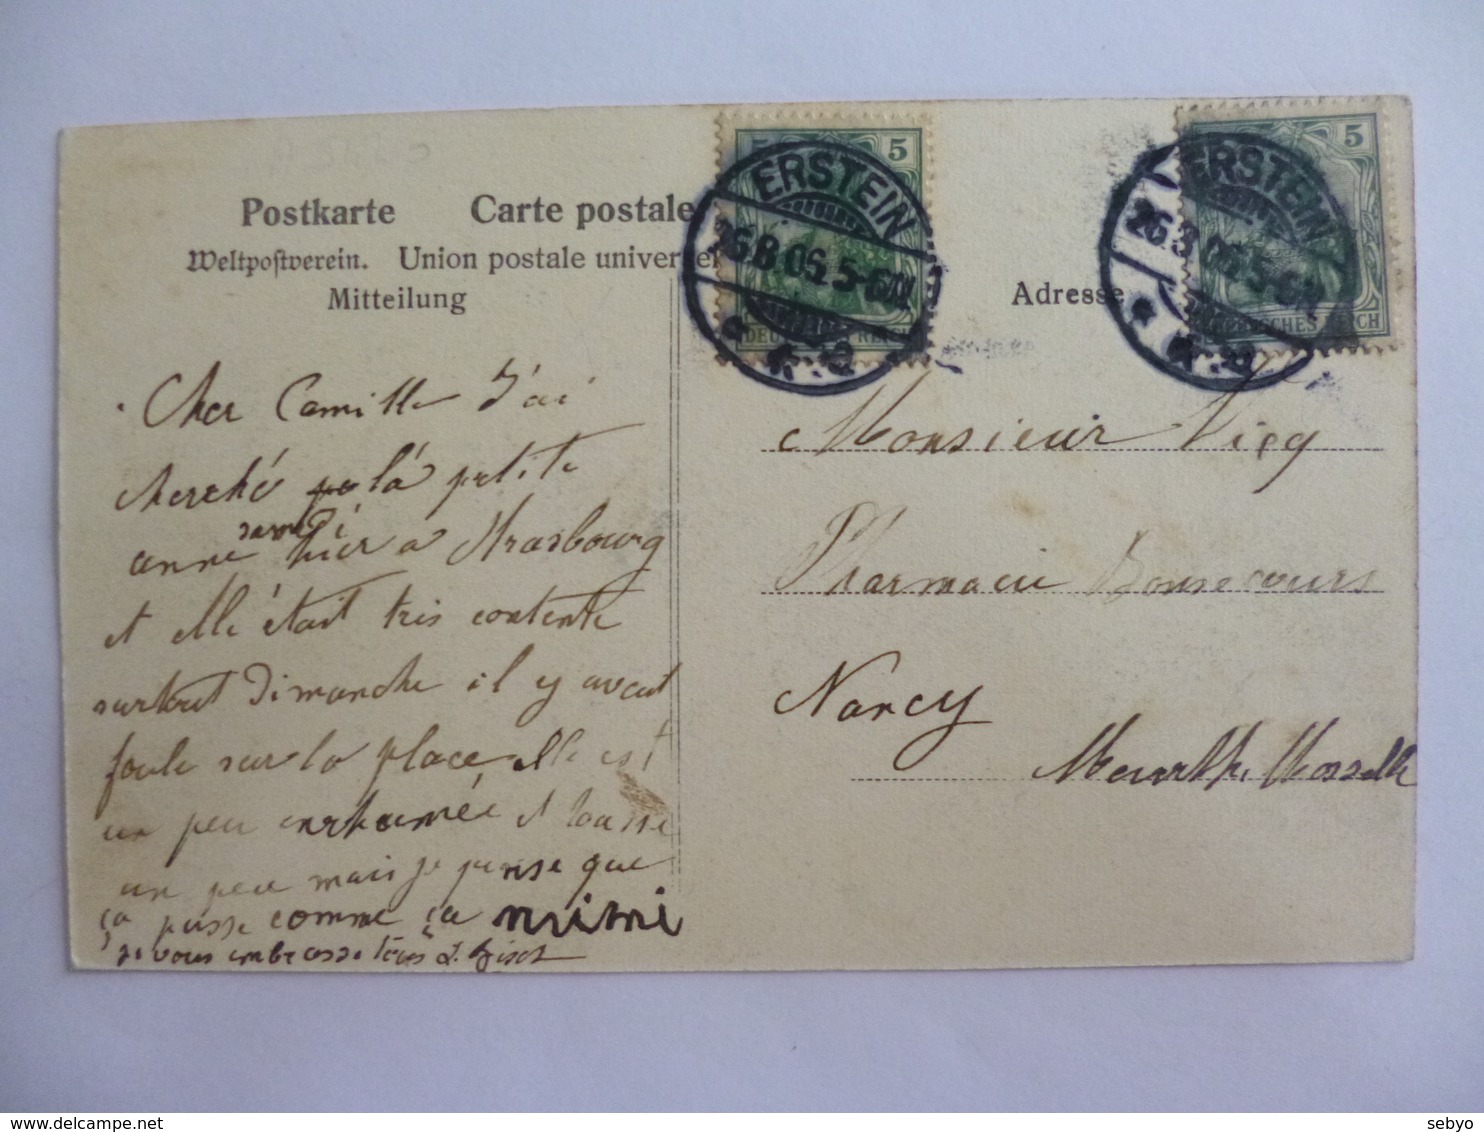 Postkarte Carte postale
Weltpostverein. Union postale univer
Mitteilung
Adresse
5 5
DEUTSCHES REICH
ERSTEIN
26.8.06.5-6N.
5
DEUTSCHES REICH
ERSTEIN
26.8.06.5-6N.
Cher Camille J'ai
cherché la petite
samedi
anne hier a Strasbourg
et elle était très contente
surtout Dimanche il y avait
foule sur la place elle est
un peu enrhumée et tousse
un peu mais je pense que
ça passe comme ça mimi
je vous embrasse tous
Monsieur
Pharmacie Bonsecours
Nancy
Meurthe Moselle
sebyo